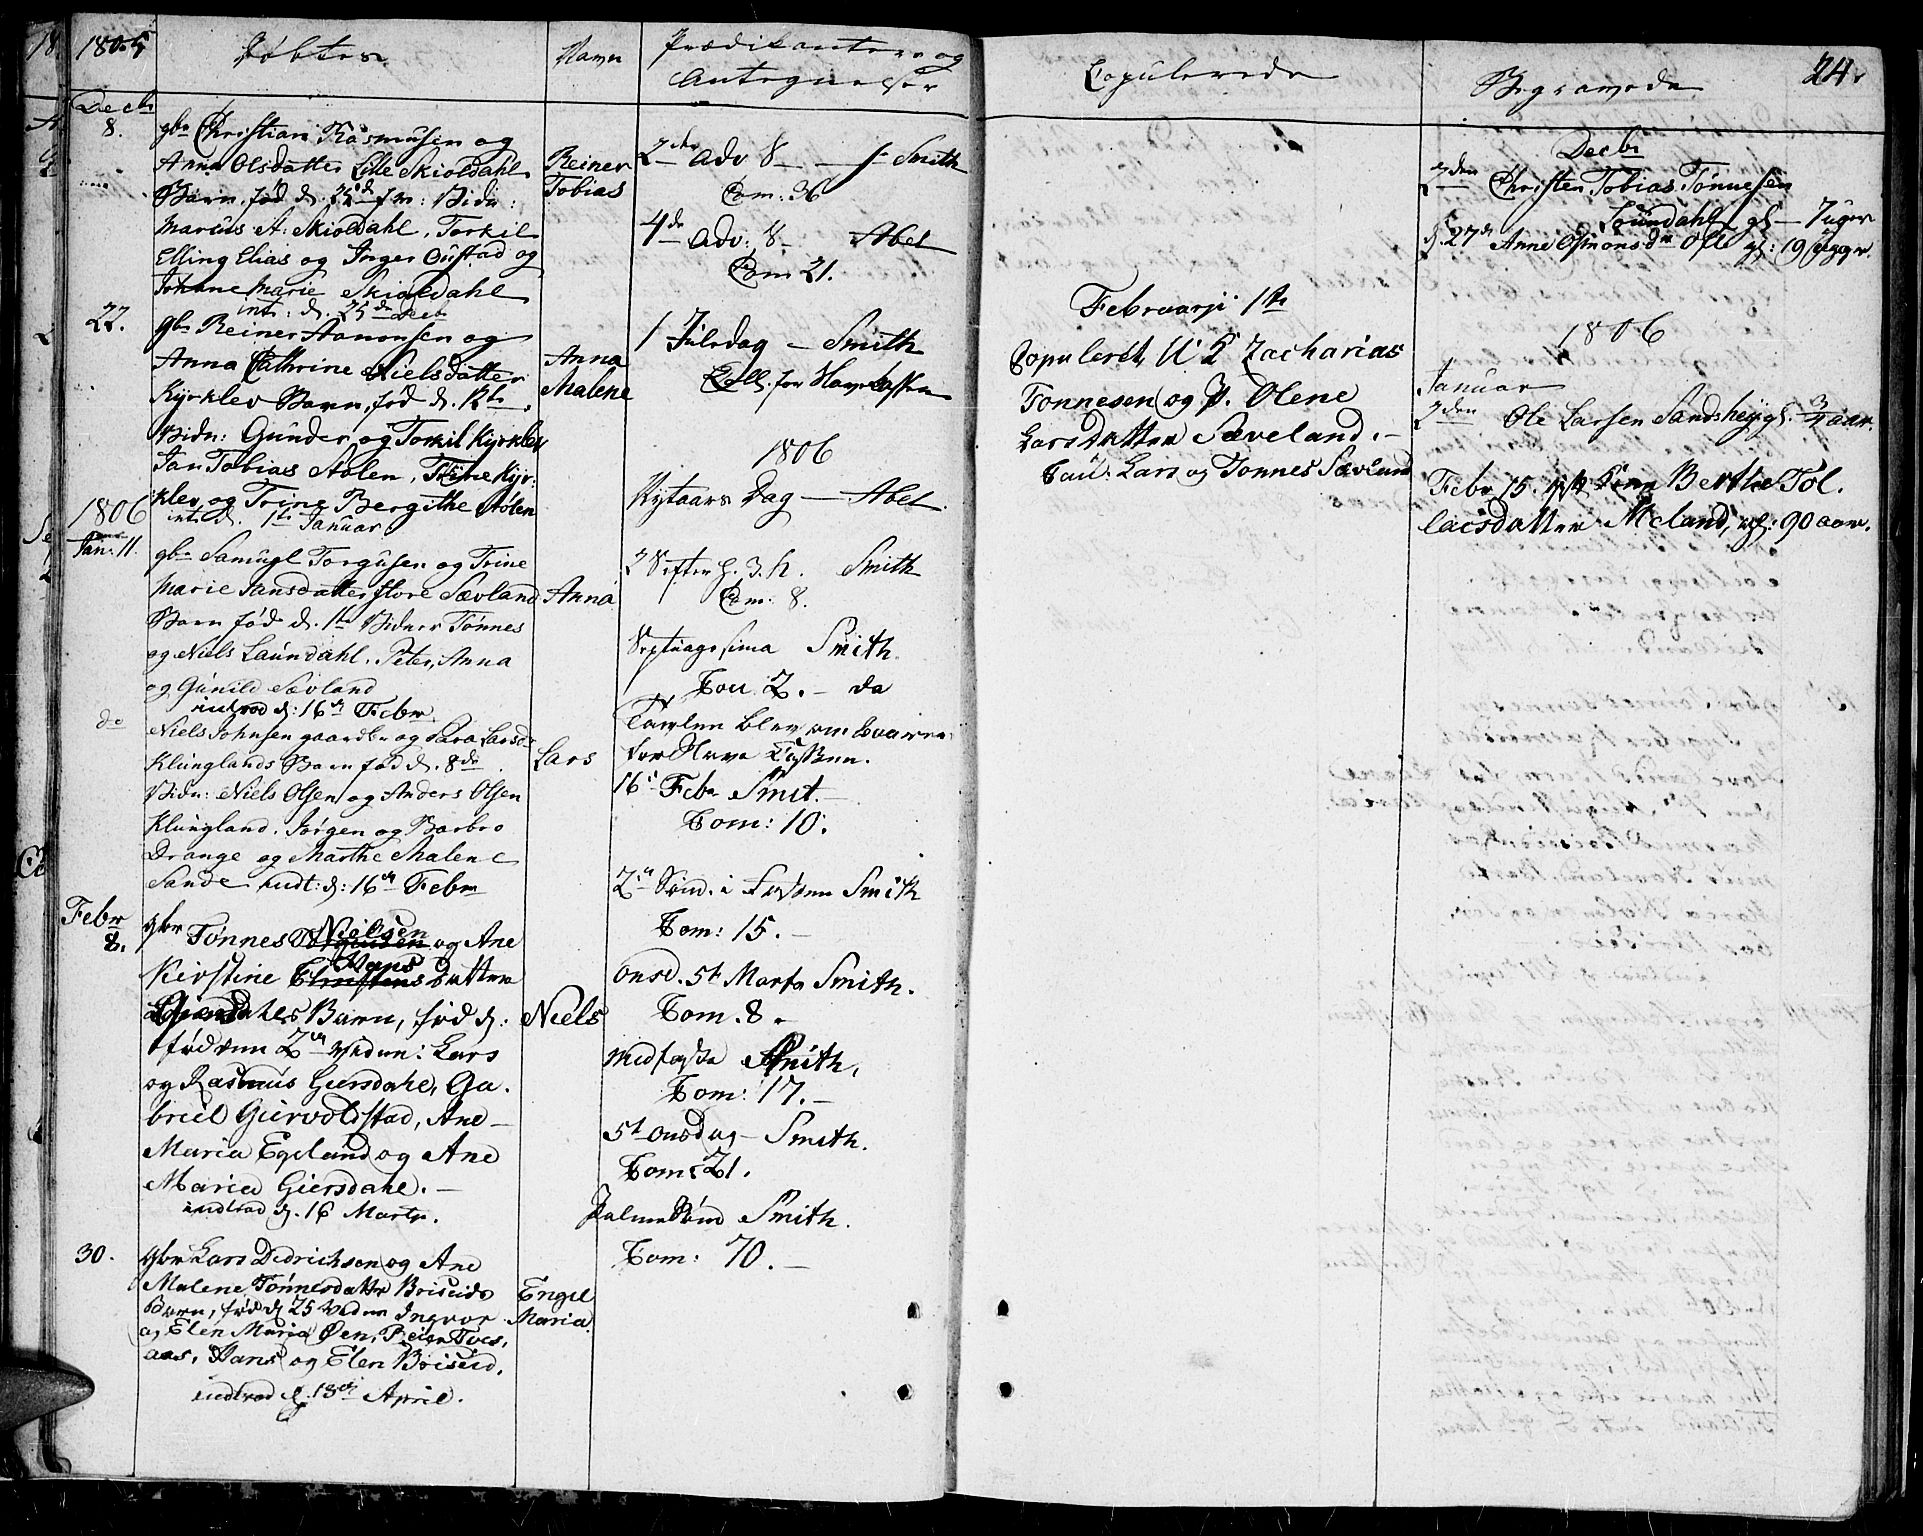 1805
Døbte
Navn
Prædikantere og
Antegnelser
Copulerede
Begravede
24.
Decb
8.
gbr Christian Rasmusen og
Anna Olsdatter Lille Skioldahl
Barn, fød d. 25de f m: Vidn:
Marius A: Skioldahl, Torkil
Elling Elias og Inger Oustad og
Johane Marie Skioldahl
int: d. 25de Decb
Reiner
Tobias
22.
gbr Reiner Aanonsen og
Anna Cathrine Nielsdatter
Kyrklev Barn, fød d. 12te
Vidn: Gunder og Torkil Kyrklev
Jan Tobias Aolen, Trine Kyr:
klev og Trine Bergithe Aolen
int: d. 1te Januar
Anna
Malene
1806
Jan: 11.
gbr Samuel Torgusen og Trine
Marie Jansdatter Store Sævland
Barn fød d. 1te Vidner Tønnes
og Niels Laundahl, Peter, Anna
og Gunild Sævland
introd d: 16de Febr
Anna
do
Niels Johnsen gaardbr og Sara Larsd
Klunglands Barn fød d. 8de
Vidn: Niels Olsen og Anders Olsen
Klungland, Jørgen og Barbro
Drange og Marthe Malene
Sande indt: d: 16de Febr
Lars
Febr
8.
gbr Tønnes Nielsen og Ane
Kirstine Hans datter
Giersdahls Barn, fød d:
fødsm 2de Vidn: Lars
og Rasmus Giersdahl, Ga-
briel Giervoldstad, Ane
Maria Egeland og Ane
Maria Giersdahl.
indlad d. 16 Marts.
Niels
30.
gbr Lars Didrichsen og Ane
Malene Tønnesdatter Briseids
Barn, fød d 25 Vidn Ingvor
og Elen Maria Øen, Reier Tves-
aas, Hans og Elen Briseid,
indlad d. 13de April.
Engel
Maria
2den Adv 8 — Smith
Com: 36
4de Adv: 8 — Abel
Com 21.
1 Juledag — Smith
Coll. for Havekassen
1806
Nytaars Dag — Abel
2 S efter H. 3. K. Smith
Com: 8.
Septuagesima Smith.
Com 2. — da
Tavlen blev ombaaren
for Have Cassen.
16de Febr Smit.
Com: 10.
2de Søn. i Fasten Smith
Com: 15.
Onsd. 5te Marts Smith.
Com. 8.
Midfaste Smith,
Com: 17.
5te Onsdag — Smith.
Com: 21.
PalmeSønd Smith.
Com: 70.
Februarji 1te
Copuleret U K Zacharias
Tonnesen og P. Olene
Lars Datter Sæveland.
Cau: Lars og Tonnes Sævland
Decbr
2den Christen Tobias Tønnesen
Loundahl gl — 7 uger
d. 27de Anne Osmonsdr gl: 19 Uger.
1806
Januar
2den Ole Larsen Sandshey gl. 3/4 aar.
Febr 15. Berthe Tol.
lacsdatter Meland, gl: 90 aar.